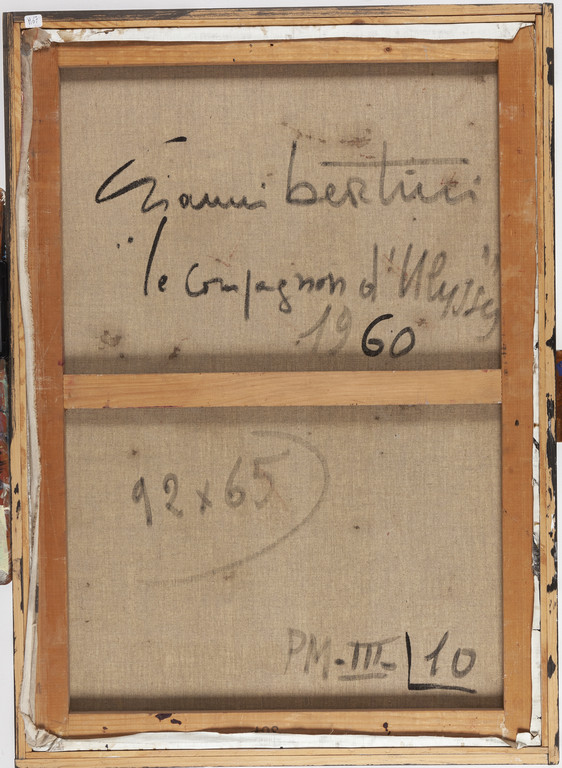 Gianni bertini
"le compagnon d'Ulysse"
1960
92 x 65
PM-III-10